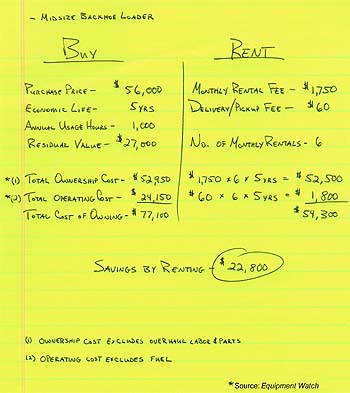 - MIDSIZE BACKHOE LOADER
BUY
PURCHASE PRICE - $56,000
ECONOMIC LIFE - 5 YRS
ANNUAL USAGE HOURS - 1,000
RESIDUAL VALUE - $27,000
*(1) TOTAL OWNERSHIP COST - $52,950
*(2) TOTAL OPERATING COST - $24,150
TOTAL COST OF OWNING - $77,100
RENT
MONTHLY RENTAL FEE - $1,750
DELIVERY/PICKUP FEE - $60
NO. OF MONTHLY RENTALS - 6
$1,750 × 6 × 5 YRS = $52,500
$60 × 6 × 5 YRS = $1,800
$54,300
SAVINGS BY RENTING - $22,800
(1) OWNERSHIP COST EXCLUDES OVERHAUL LABOR & PARTS
(2) OPERATING COST EXCLUDES FUEL
*Source: Equipment Watch